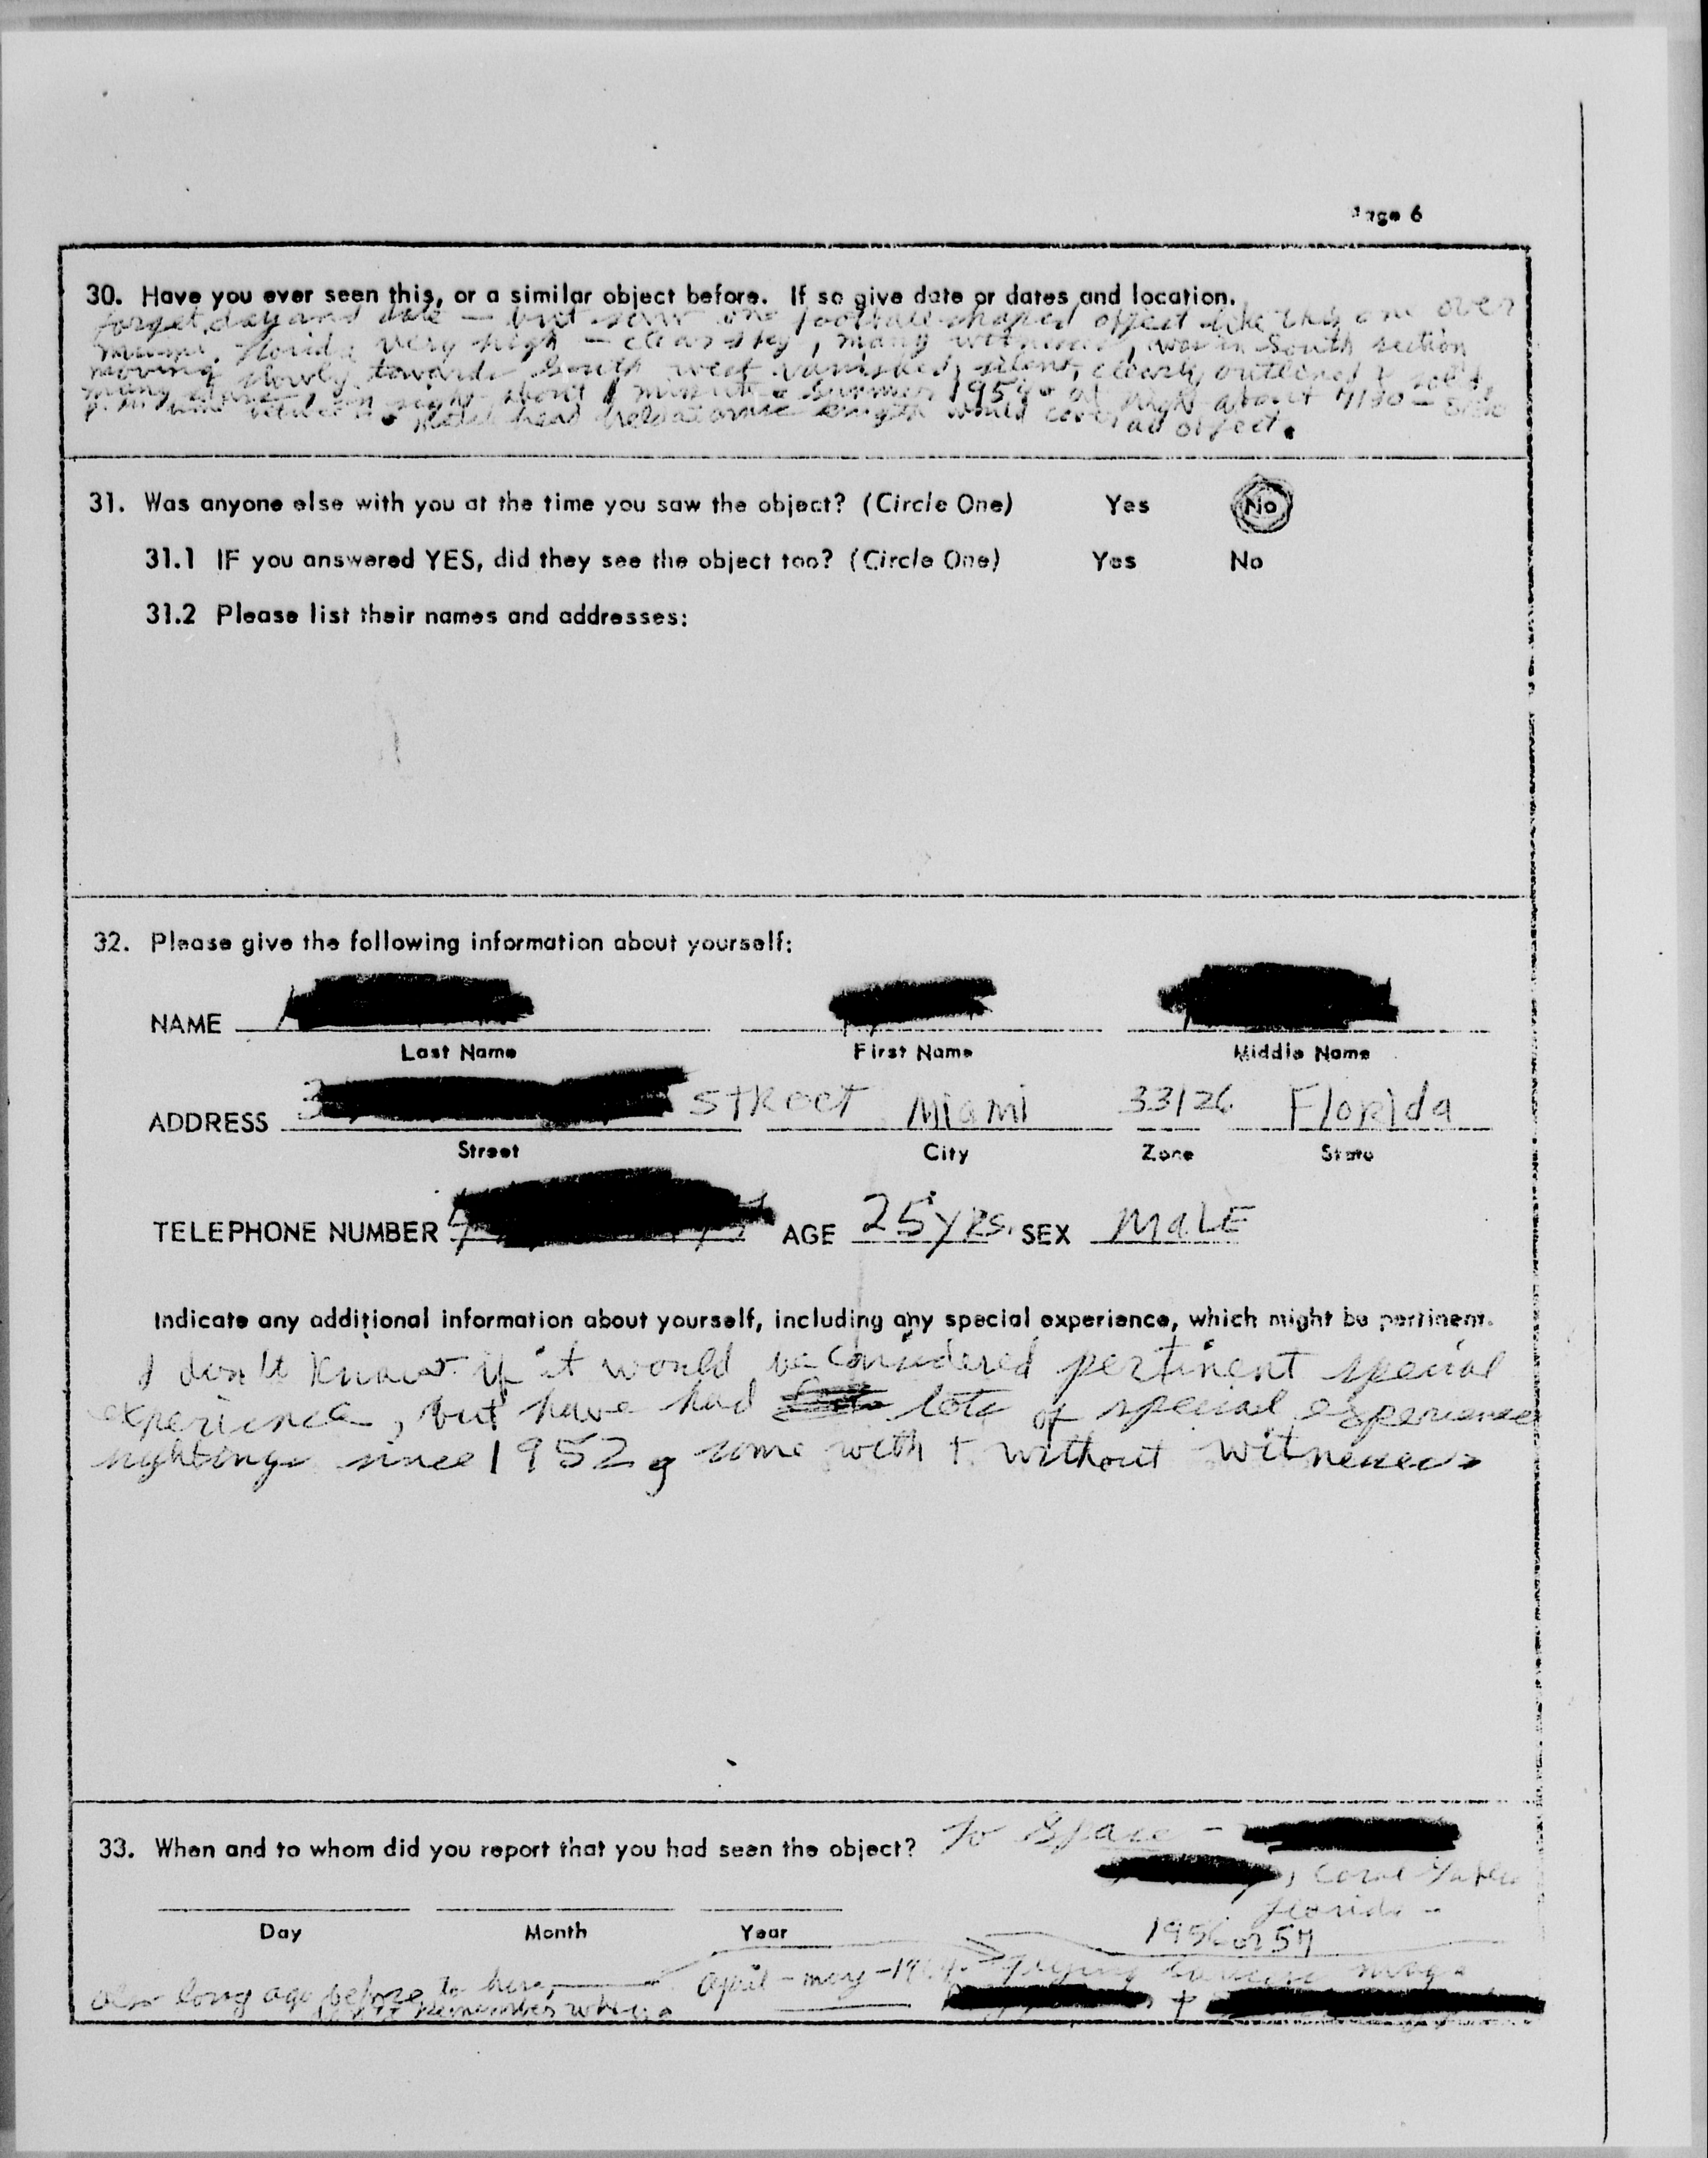 Page 6
30. Have you ever seen this, or a similar object before. If so give date or dates and location.
forget day and date — but saw one football-shaped object like this one over
Miami, Florida very high — clear sky, many witnesses, was in South section
moving slowly towards South west vanished, silent, clearly outlined & solid,
many stars in sight about 1 minute Summer 195 at night about
p.m. head held at arms length would cover object.
31. Was anyone else with you at the time you saw the object? (Circle One) Yes No
31.1 IF you answered YES, did they see the object too? (Circle One) Yes No
31.2 Please list their names and addresses:
32. Please give the following information about yourself:
NAME
Last Name First Name Middle Name
ADDRESS 3 Street Miami 33126 Florida
Street City Zone State
TELEPHONE NUMBER AGE 25 yrs. SEX MaLE
Indicate any additional information about yourself, including any special experience, which might be pertinent.
I don't know if it would be considered pertinent special
experience, but have had lots of special experience
sightings since 1952, some with + without witnesses
33. When and to whom did you report that you had seen the object? To Space -
, Coral Gables
Florida -
Day Month Year
1956 or 57
also long ago before to here, april - may - 1964. Flying Saucers mag.
remember when. +